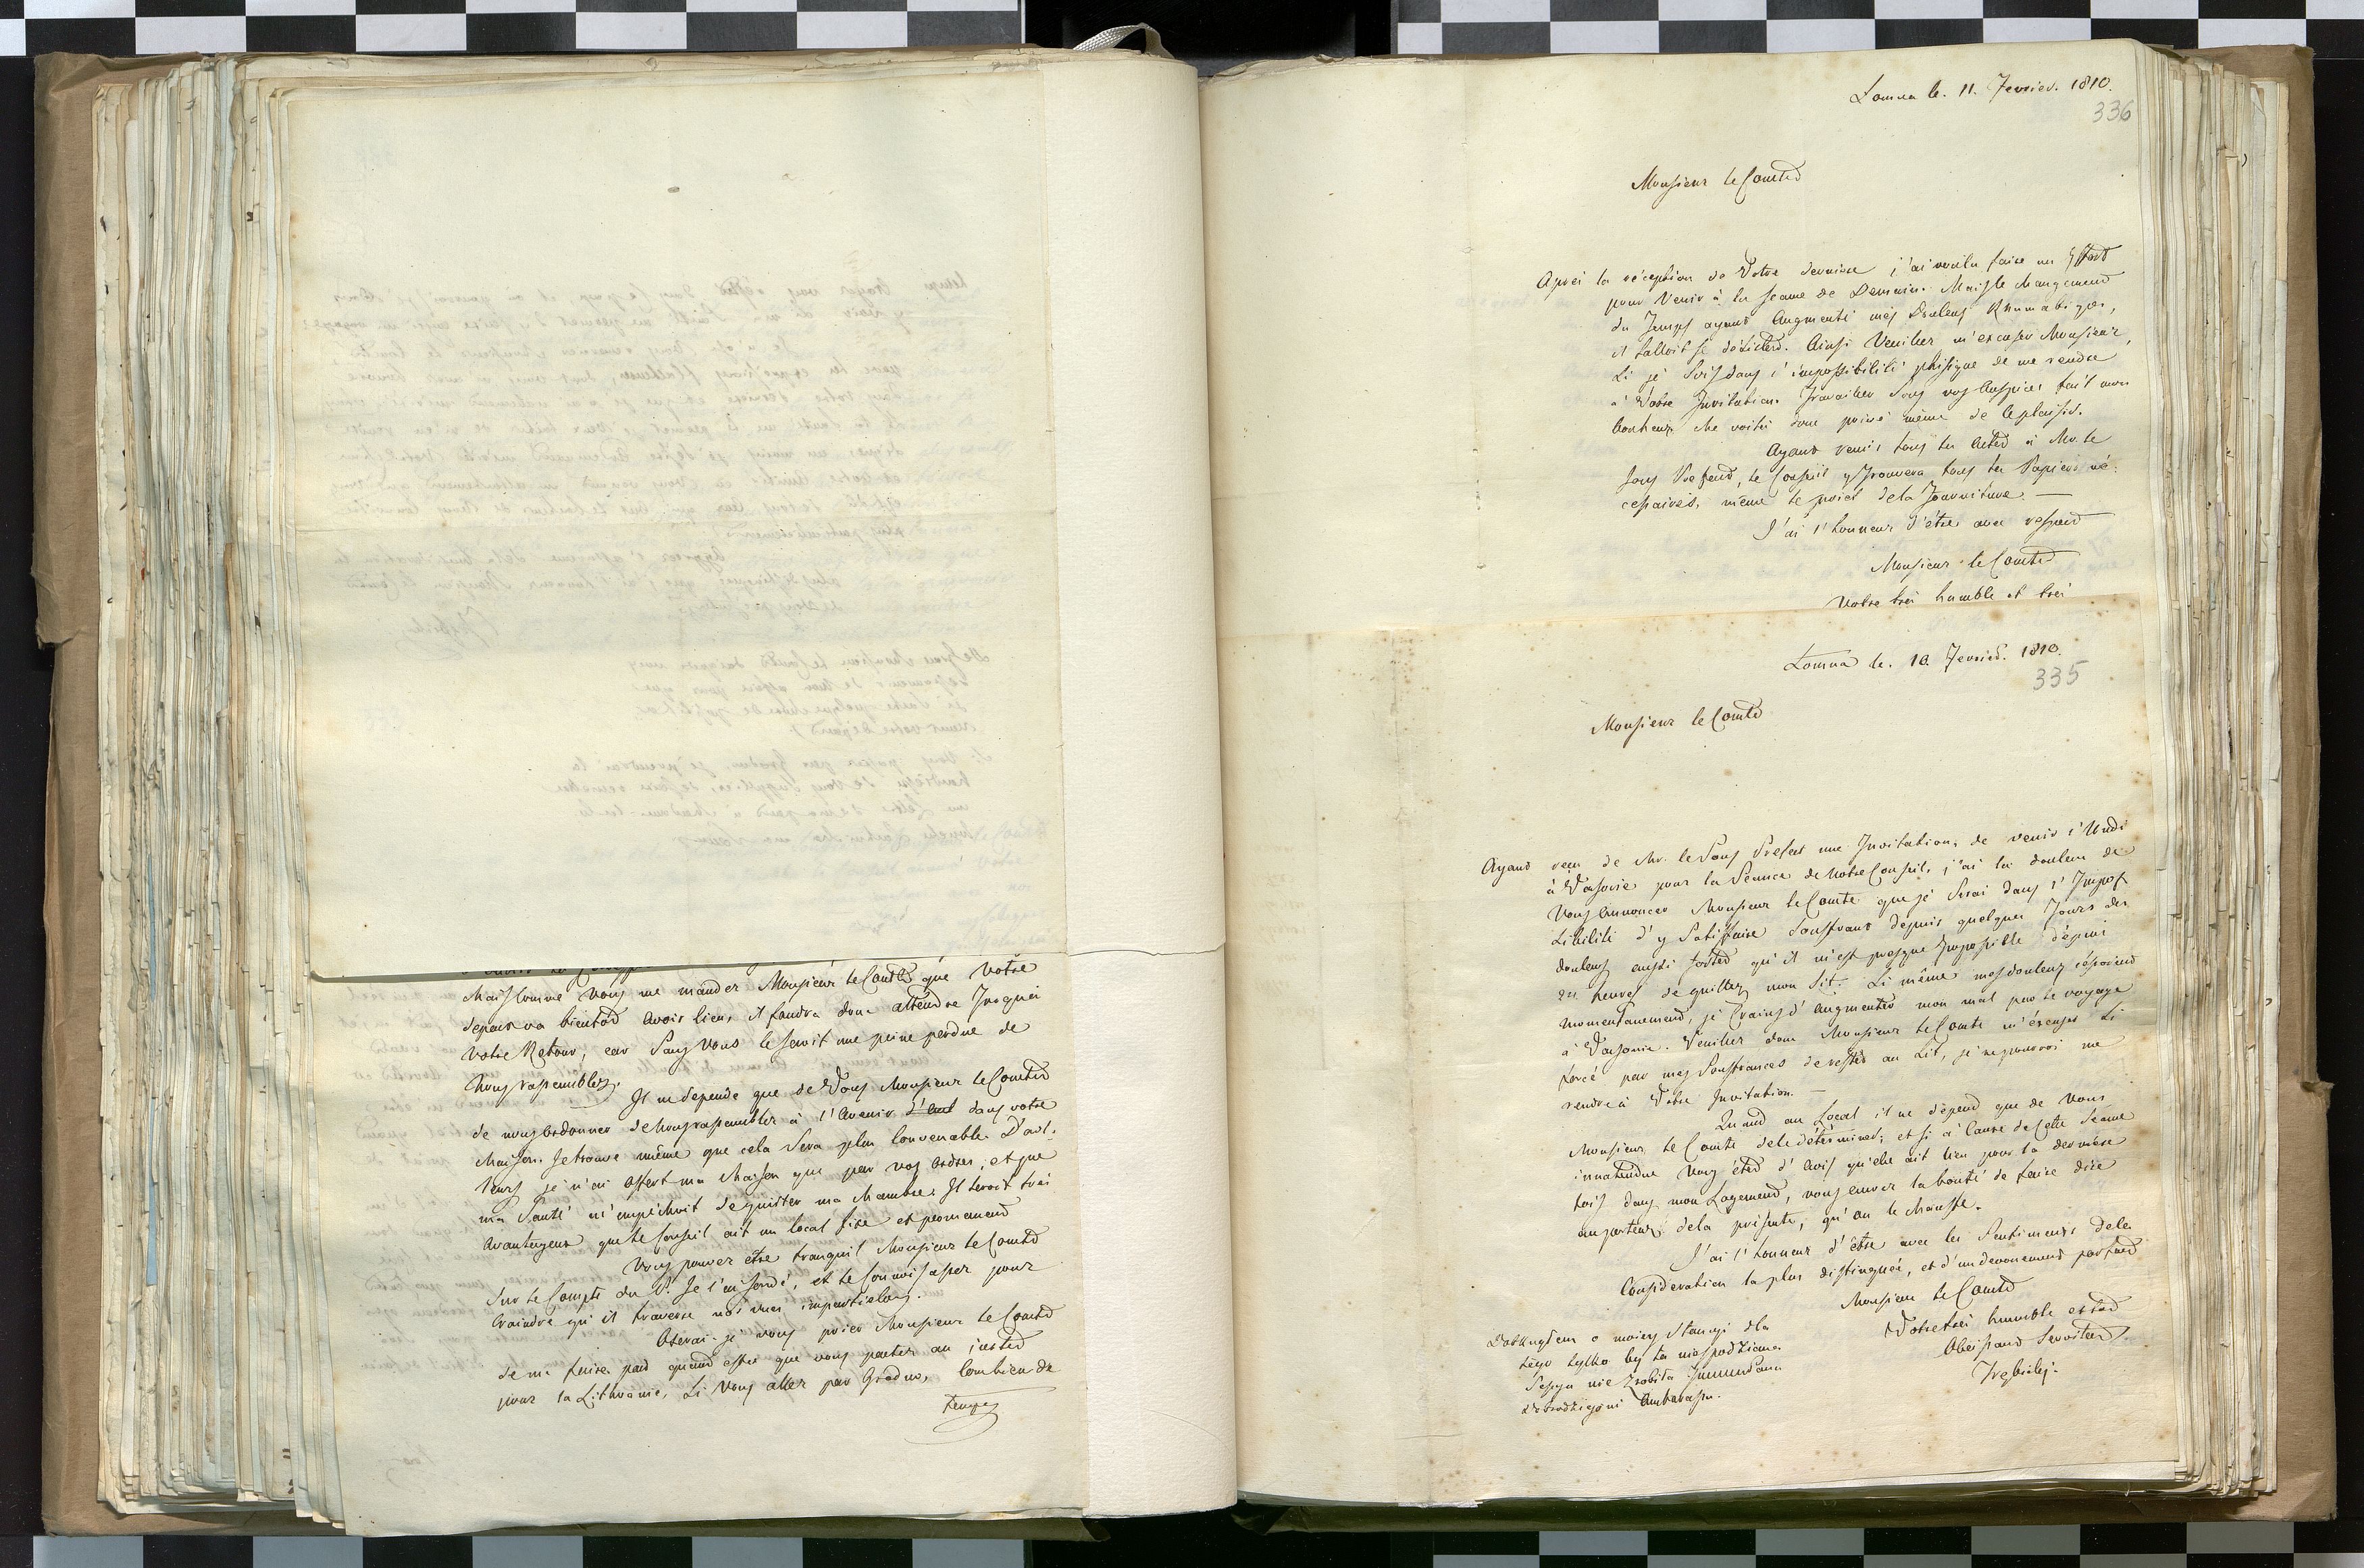 Mais comme vous me mander Monsieur le Comte que Votre
depart va bientot avoir lieu, il faudra donc attendre jusques
votre Retour, car sans vous le seroit une peine perdue de
nous rassembler.
Il ne depende que de Vous Monsieur le Comte
de nous ordonner de nous rassembler à l'avenir dans votre
Maison. Je trouve même que cela sera plus convenable. D'ail-
leurs je n'ai offert ma Maison que par vos ordres, et que
ma Santé m'empechoit de quitter ma chambre. Il seroit trai
avantageux que le Conseil ait un local fixe et permanend
Vous pouver être tranquil Monsieur le Comte
Sur le Compte du P. Je l'ai sondé, et le connois assez pour
craindre qu'il traverse nos vues impartielles.
Oserai-je vous prier Monsieur le Comte
de me faire part quand estce que vous parter au juste
pour la Lithuanie, si vous aller par Grodno, combien de
temps
Lomna le. 11. Fevrier. 1810.
336
Monsieur le Comte
Aprés la réception de Votre derniere j'ai voulu faire un Effort
pour venir à la seance de Demain. Mais le changement
du Temps ayant augmenté mes Douleurs Rhumatiques,
il falloit se désister. Ainsi Veuiller m'excuser Monsieur,
si je suis dans l'impossibilité phisique de me rendre
a' Votre Invitation. Travailler sous vos auspices fait mon
bonheur me voilà donc privé même de ce plaisir.
Ayant remis tous les actes à Mr. le
Sous Prefect, le Conseil y trouvera tous les Papiers né-
cessaires, même le projet de la fourniture. —
J'ai l'honneur d'être avec respect
Monsieur le Comte
Votre trés humble et trés
Lomna le. 10. Fevrier. 1810.
335
Monsieur le Comte
Ayant recu de Mr. le Sous Prefect une Invitation, de venir l'undi
à Varsovie pour la Séance de notre Conseil, j'ai la douleur de
Vous annoncer Monsieur le Comte que je serai dans l'Impos-
sibilité d'y satisfaire souffrant depuis quelques Jours des
douleurs aussi fortes qu'il m'est presque Impossible depuis
24 heures de quitter mon Lit. Si même mes douleurs cessoient
momentanement, je crains d'augmenter mon mal par le voyage
à Varsovie. Veuiller donc Monsieur le Comte m'excuser si
forcé par mes souffrances de rester au Lit, je ne pourroi me
rendre à Votre Invitation. —
Quand au Local il ne dépend que de Vous
Monsieur le Comte de le déterminer; et si à cause de cette seance
innatendue Vous éter d'avis qu'elle ait lieu pour la derniére
fois dans mon Logement, vous aurez la bonté de faire dire
au porteur de la présente, qu'on le chauffe.
J'ai l'honneur d'être avec les sentiments de la
Consideration la plus distinguée, et d'un devouement parfait
Monsieur le Comte
Votre trés humble et trés
Obeissant Serviteur
Dotknąłem o moiey stancyi dla
tego tylko by ta niespodziana
Sessya nie zrobiła JWmu Panu
Dobrodzieiowi Ambarasu.